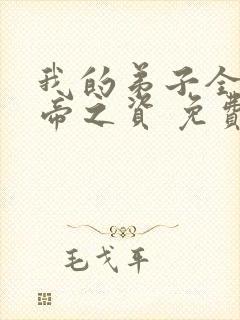 我的弟子全
帝之資 免費
毛戈平